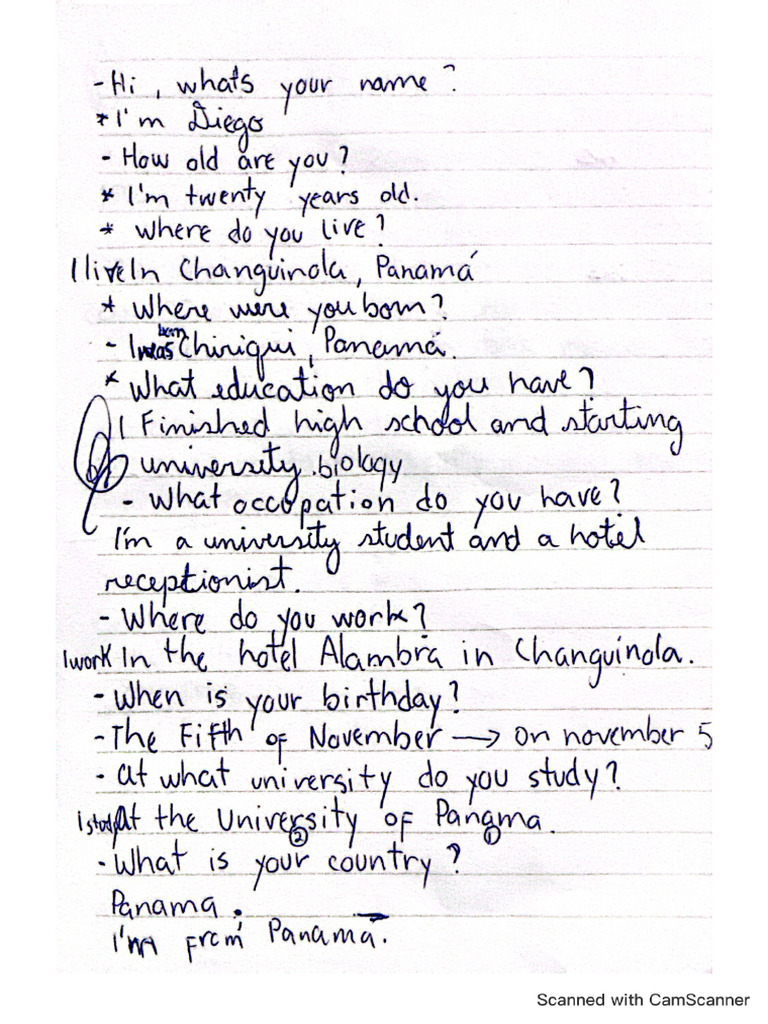 - Hi, what's your name?
* I'm Diego
- How old are you?
* I'm twenty years old.
* Where do you live?
I live In Changuinola, Panamá
* Where were you born?
- I was born Chiriqui, Panamá.
* What education do you have?
I Finished high school and starting
university biology
- What occupation do you have?
I'm a university student and a hotel
receptionist.
- Where do you work?
I work In the hotel Alambra in Changuinola.
- When is your birthday?
- The Fifth of November → on november 5
- at what university do you study?
I study At the University of Panama.
② ①
- What is your country?
Panama.
I'm from Panamá.
Scanned with CamScanner